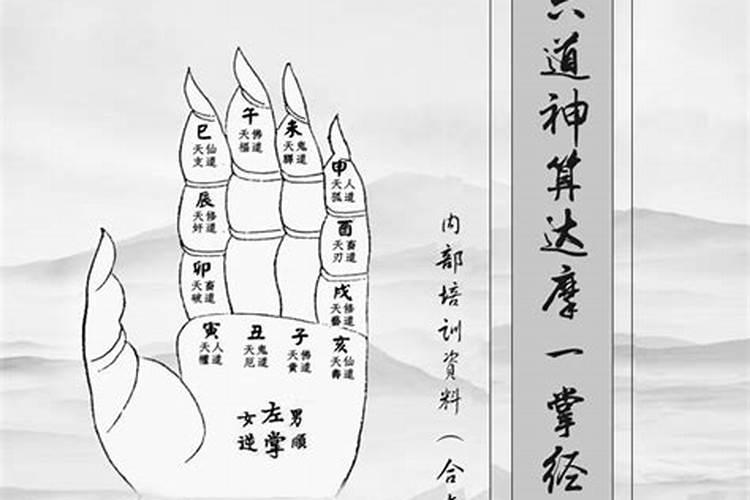 六道神算达摩一掌经
内部培训資料（合
巳
天支 仙道
午
天福 佛道
未
天驛 鬼道
申
天孤 人道
辰
天奸 修道
酉
天刃 畜道
卯
天破 畜道
戌
天藝 修道
寅
天權 人道
丑
天厄 鬼道
子
天貴 佛道
亥
天壽 仙道
左掌
男順
女逆